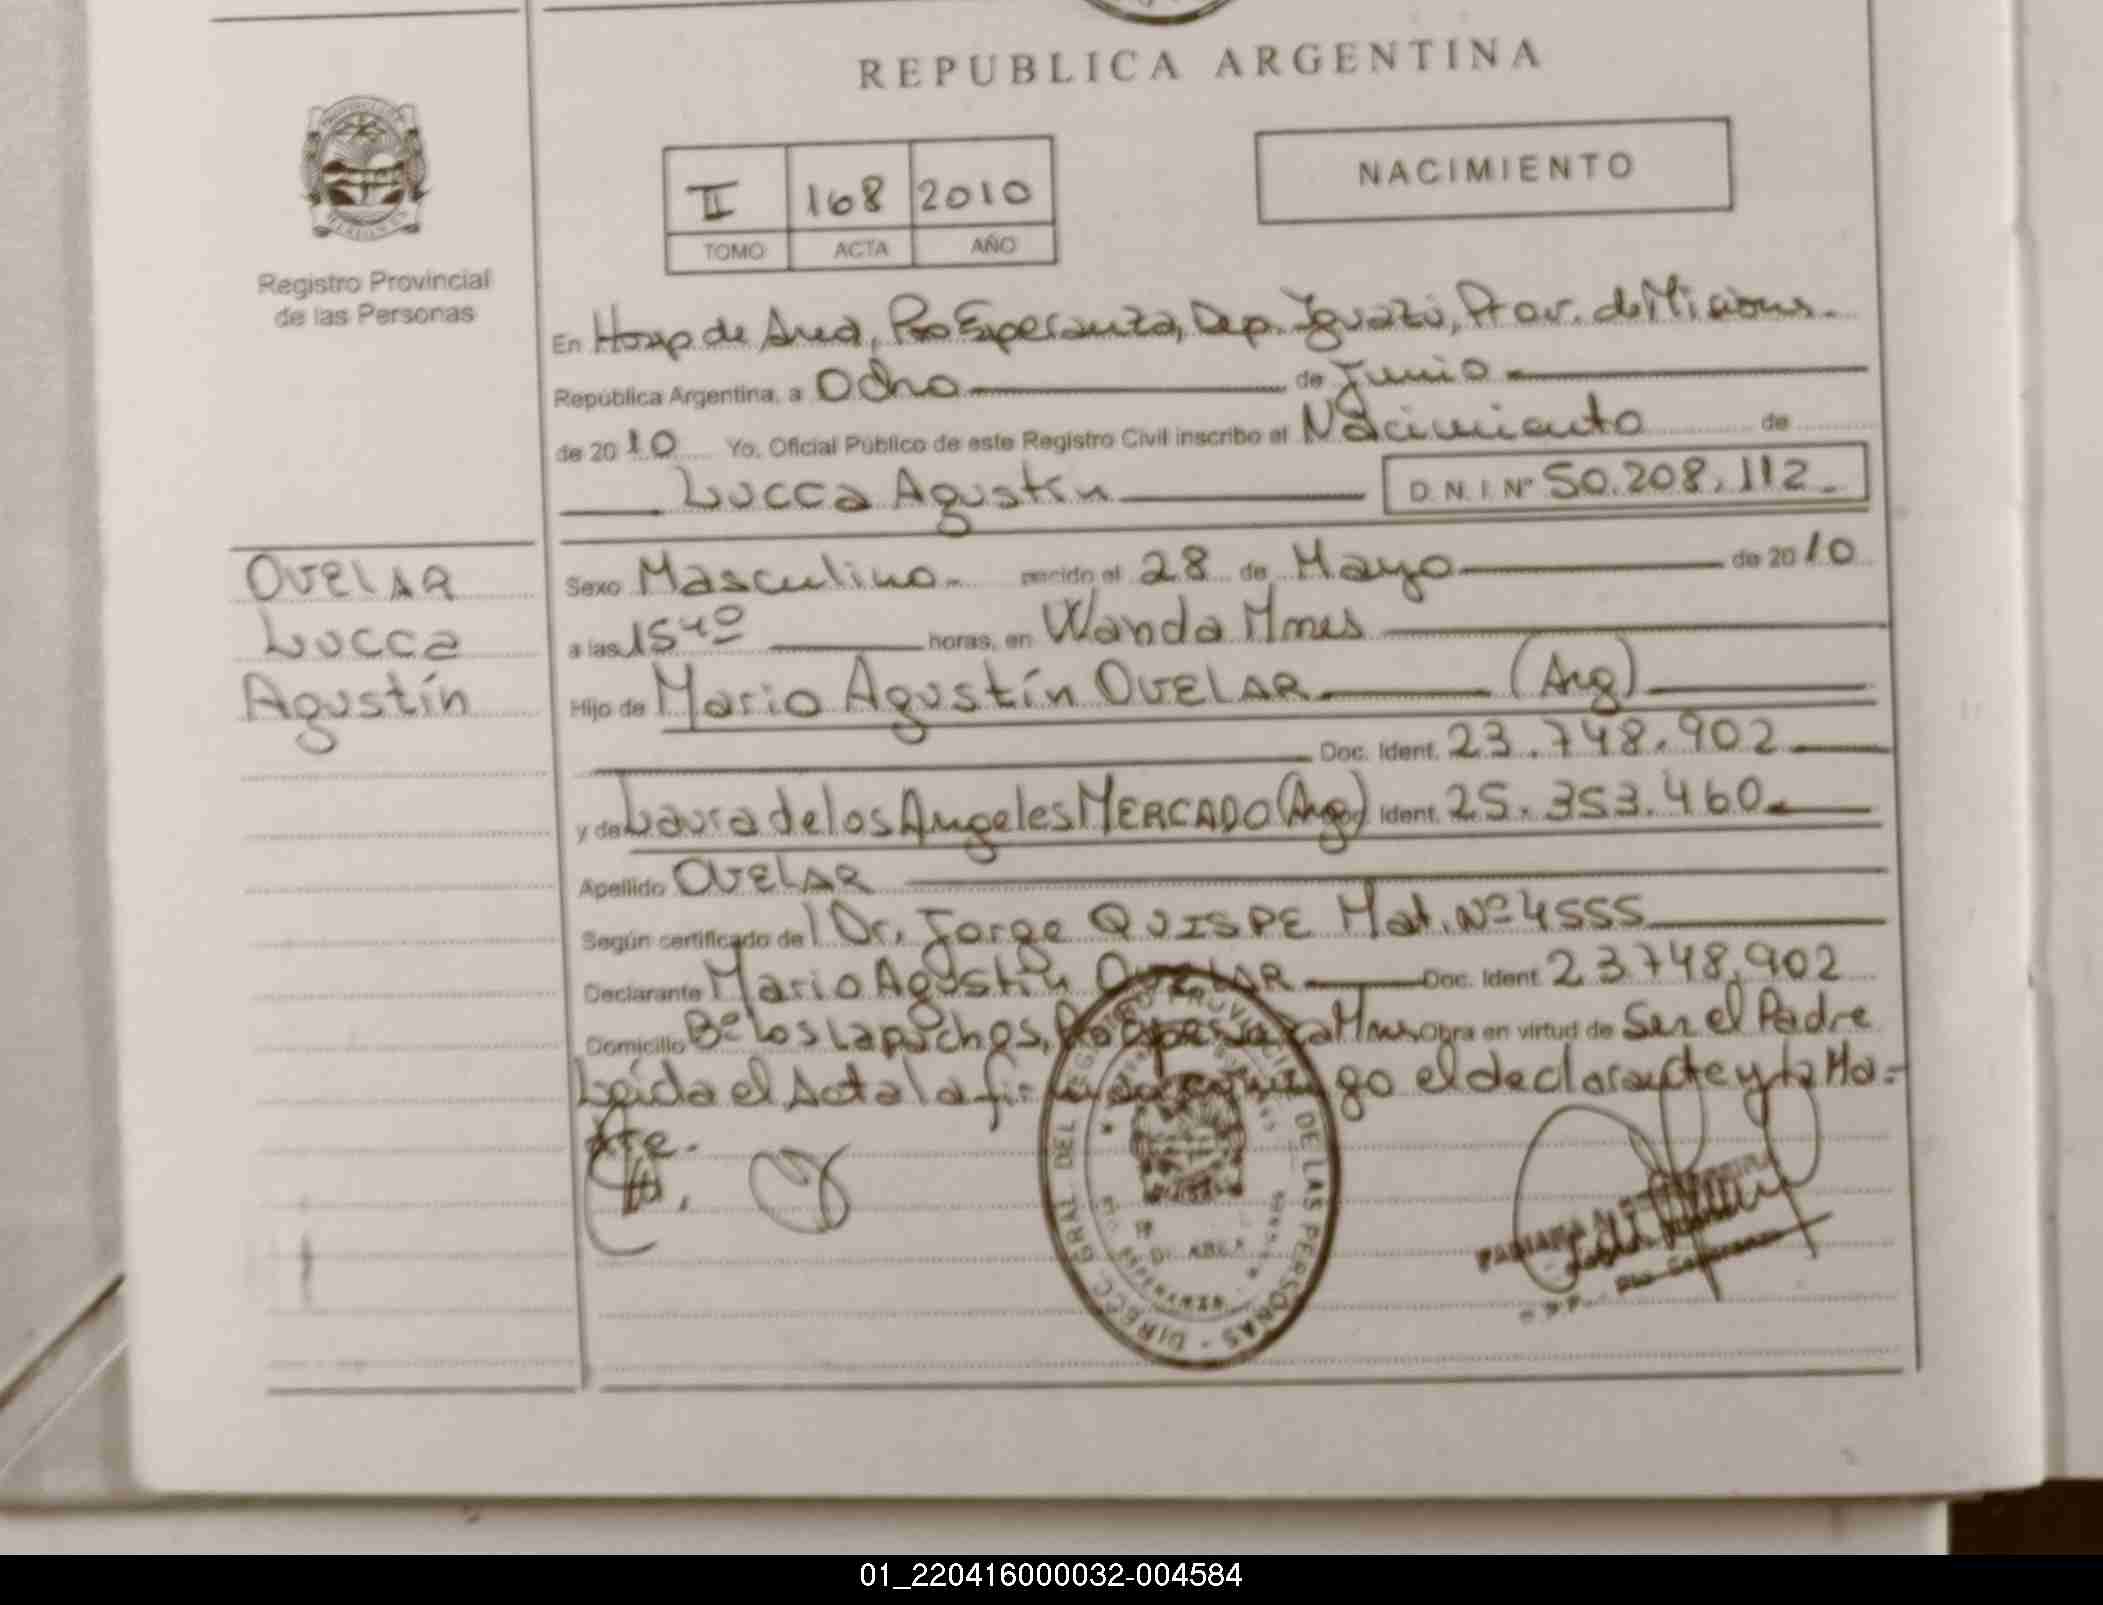 REPUBLICA ARGENTINA
NACIMIENTO
II 168 2010
TOMO ACTA AÑO
Registro Provincial
de las Personas
En Hosp de Area, Pto Esperanza, Dep. Iguazú, Prov. de Misiones.
República Argentina, a Ocho de Junio
de 2010 Yo, Oficial Público de este Registro Civil inscribo el Nacimiento de
Lucca Agustín D.N.I. Nº 50.208.112
OVELAR
Lucca
Agustín
Sexo Masculino nacido el 28 de Mayo de 2010
a las 15 40 horas, en Wanda Mnes
Hijo de Mario Agustín OVELAR (Arg)
Doc. Ident. 23.748.902
y de Laura de los Angeles MERCADO (Arg) Ident. 25.353.460
Apellido OVELAR
Según certificado del Dr. Jorge QUISPE Mat. Nº 4555
Declarante Mario Agustín OVELAR Doc. Ident. 23748.902
Domicilio Bº Los Lapachos, Pto Esperanza Mnes Obra en virtud de Ser el Padre
Leída el Acta la firma conmigo el declarante y la Ma-
dre.
DIRECC. GRAL. DEL REGISTRO PROVINCIAL DE LAS PERSONAS
01_220416000032-004584